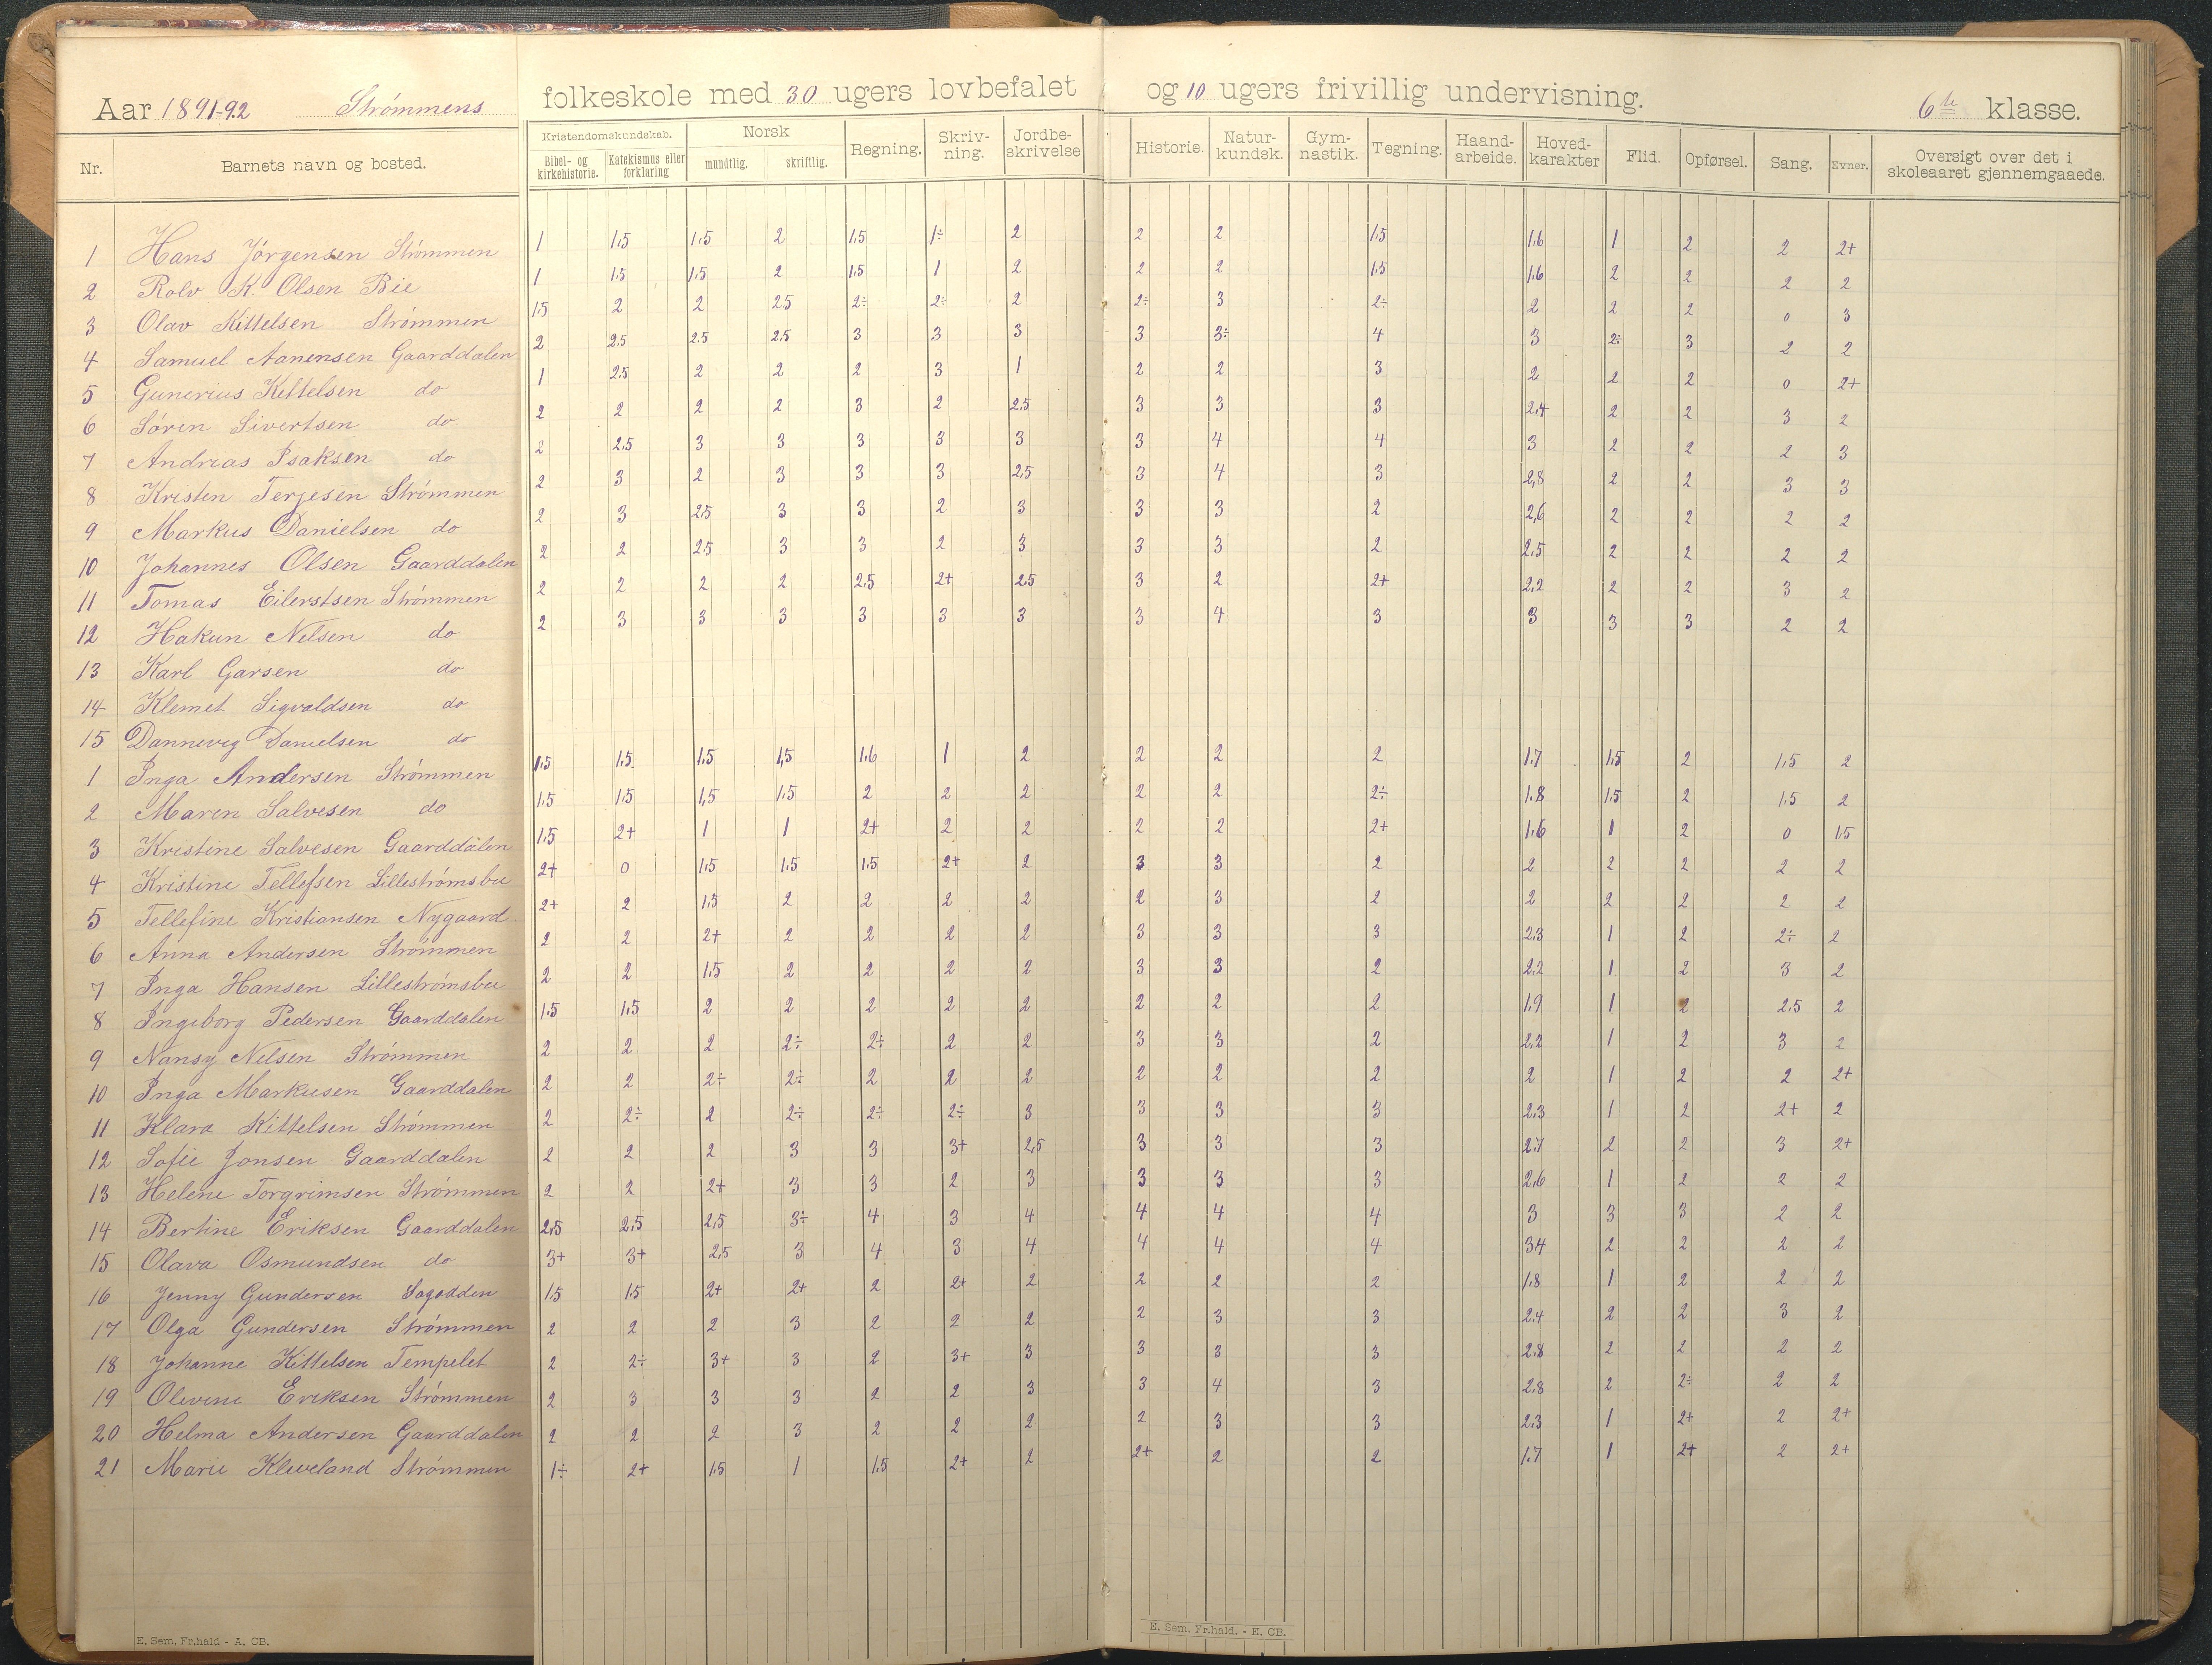 Aar 1891-92 Strømmens folkeskole med 30 ugers lovbefalet og 10 ugers frivillig undervisning. 6te klasse.
Nr. Barnets navn og bosted. Kristendomskundskab. Bibel- og kirkehistorie. Katekismus eller forklaring Norsk mundtlig. skriftlig. Regning. Skriv-ning. Jordbe-skrivelse Historie. Natur-kundsk. Gym-nastik. Tegning. Haand-arbeide. Hoved-karakter Flid. Opførsel. Sang. Evner. Oversigt over det i skoleaaret gjennemgaaede.
1 Hans Jørgensen Strømmen 1 1.5 1.5 2 1.5 1÷ 2 2 2 1.5 1.6 1 2 2 2+
2 Rolv K. Olsen Bie 1 1.5 1.5 2 1.5 1 2 2 2 1.5 1.6 2 2 2 2
3 Olav Kittelsen Strømmen 1.5 2 2 2.5 2÷ 2÷ 2 2÷ 3 2÷ 2 2 2 0 3
4 Samuel Aanensen Gaarddalen 2 2.5 2.5 2.5 3 3 3 3 3÷ 4 3 2÷ 3 2 2
5 Gunerius Kettelsen do 1 2.5 2 2 2 3 1 2 2 3 2 2 2 0 2+
6 Søren Sivertsen do 2 2 2 2 3 2 2.5 3 3 3 2.4 2 2 3 2
7 Andreas Isaksen do 2 2.5 3 3 3 3 3 3 4 4 3 2 2 2 3
8 Kristen Terjesen Strømmen 2 3 2 3 3 3 2.5 3 4 3 2,8 2 2 3 3
9 Markus Danielsen do 2 3 2.5 3 3 2 3 3 3 2 2,6 2 2 2 2
10 Johannes Olsen Gaarddalen 2 2 2.5 3 3 2 3 3 3 2 2.5 2 2 2 2
11 Tomas Eilerstsen Strømmen 2 2 2 2 2.5 2+ 2.5 3 2 2+ 2.2 2 2 3 2
12 Hakun Nelsen do 2 3 3 3 3 3 3 3 4 3 3 3 3 2 2
13 Karl Garsen do
14 Klemet Sigvaldsen do
15 Dannevig Danielsen do
1 Inga Andersen Strømmen 1.5 1.5 1.5 1,5 1.6 1 2 2 2 2 1.7 1.5 2 1.5 2
2 Maren Salvesen do 1.5 1.5 1,5 1.5 2 2 2 2 2 2÷ 1.8 1.5 2 1.5 2
3 Kristine Salvesen Gaarddalen 1.5 2+ 1 1 2+ 2 2 2 2 2+ 1.6 1 2 0 1.5
4 Kristine Tellefsen Lillestrømsbu 2+ 0 1.5 1.5 1.5 2+ 2 3 3 2 2 2 2 2 2
5 Tellefine Kristiansen Nygaard 2+ 2 1.5 2 2 2 2 2 3 2 2 2 2 2 2
6 Anna Andersen Strømmen 2 2 2+ 2 2 2 2 3 3 3 2.3 1 2 2÷ 2
7 Inga Hansen Lillestrømsbu 2 2 1.5 2 2 2 2 3 3 2 2.2 1 2 3 2
8 Ingeborg Pedersen Gaarddalen 1.5 1.5 2 2 2 2 2 2 2 2 1.9 1 2 2.5 2
9 Nansy Nilsen Strømmen 2 2 2 2÷ 2÷ 2 2 3 3 2 2.2 1 2 3 2
10 Inga Markusen Gaarddalen 2 2 2÷ 2÷ 2 2 2 2 2 2 2 1 2 2 2+
11 Klara Kittelsen Strømmen 2 2÷ 2 2÷ 2÷ 2÷ 3 3 3 3 2.3 1 2 2+ 2
12 Sofie Jonsen Gaarddalen 2 2 2 3 3 3+ 2,5 3 3 3 2.7 2 2 3 2+
13 Helene Torgrimsen Strømmen 2 2 2+ 3 3 2 3 3 3 3 2.6 1 2 2 2
14 Bertine Eriksen Gaarddalen 2.5 2.5 2.5 3÷ 4 3 4 4 4 4 3 3 3 2 2
15 Olava Osmundsen do 3+ 3+ 2.5 3 4 3 4 4 4 4 3.4 2 2 2 2
16 Jenny Gundersen Sagodden 1.5 1.5 2+ 2+ 2 2+ 2 2 2 2 1.8 1 2 2 2
17 Olga Gundersen Strømmen 2 2 2 3 2 2 2 2 3 3 2.4 2 2 3 2
18 Johanne Kittelsen Tempelet 2 2÷ 3+ 3 2 3+ 3 3 3 3 2.8 2 2 2 2
19 Olevine Eriksen Strømmen 2 3 3 3 2 2 3 3 4 3 2.8 2 2÷ 2 2
20 Helma Andersen Gaarddalen 2 2 2 3 2 2 2 2 3 3 2.3 1 2+ 2 2+
21 Marie Kleveland Strømmen 1÷ 2+ 1.5 1 1.5 2+ 2 2+ 2 2 1.7 1 2+ 2 2+
E. Sem, Fr.hald - A. CB.
E. Sem, Fr.hald. - E. CB.